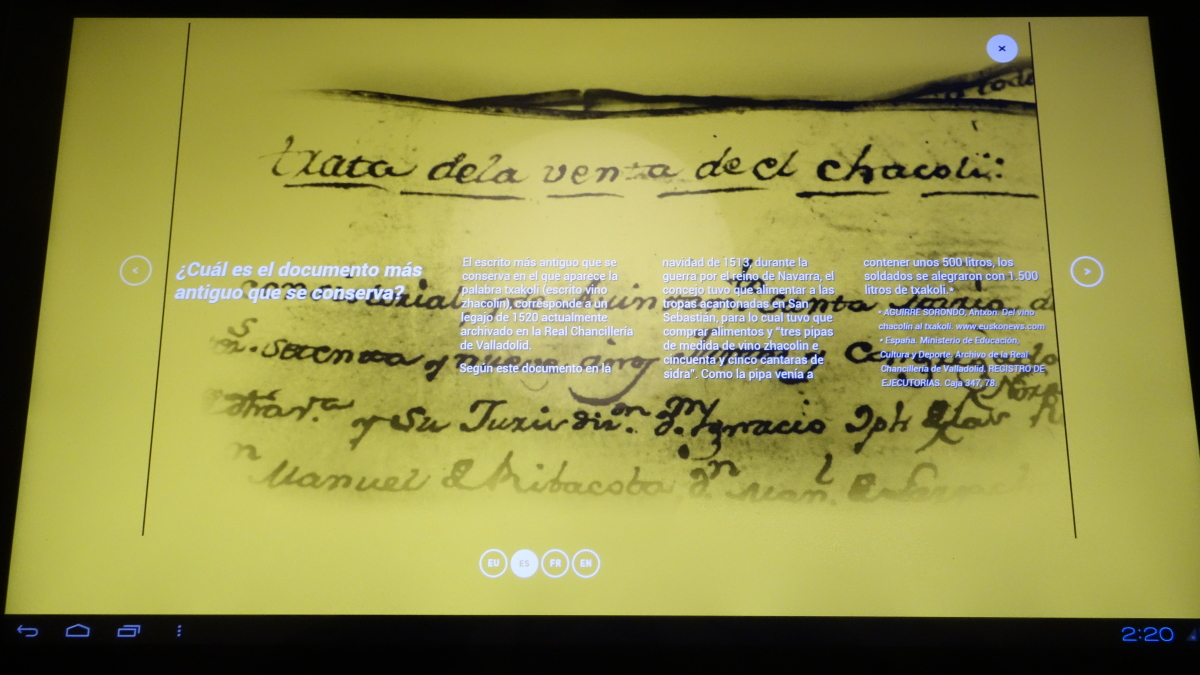 ×
trata dela venta de el chacoli:
<
>
¿Cuál es el documento más
antiguo que se conserva?
El escrito más antiguo que se
conserva en el que aparece la
palabra txakoli (escrito vino
zhacolin), corresponde a un
legajo de 1520 actualmente
archivado en la Real Chancillería
de Valladolid.
Según este documento en la
navidad de 1513, durante la
guerra por el reino de Navarra, el
concejo tuvo que alimentar a las
tropas acantonadas en San
Sebastián, para lo cual tuvo que
comprar alimentos y "tres pipas
de medida de vino zhacolin e
cincuenta y cinco cántaras de
sidra". Como la pipa venía a
contener unos 500 litros, los
soldados se alegraron con 1.500
litros de txakoli.*
• AGUIRRE SORONDO, Antxon. Del vino
chacolín al txakoli. www.euskonews.com
• España. Ministerio de Educación,
Cultura y Deporte. Archivo de la Real
Chancillería de Valladolid. REGISTRO DE
EJECUTORIAS. Caja 347, 78.
y su Jurisdin. Ignacio
Manuel
EU ES FR EN
2:20